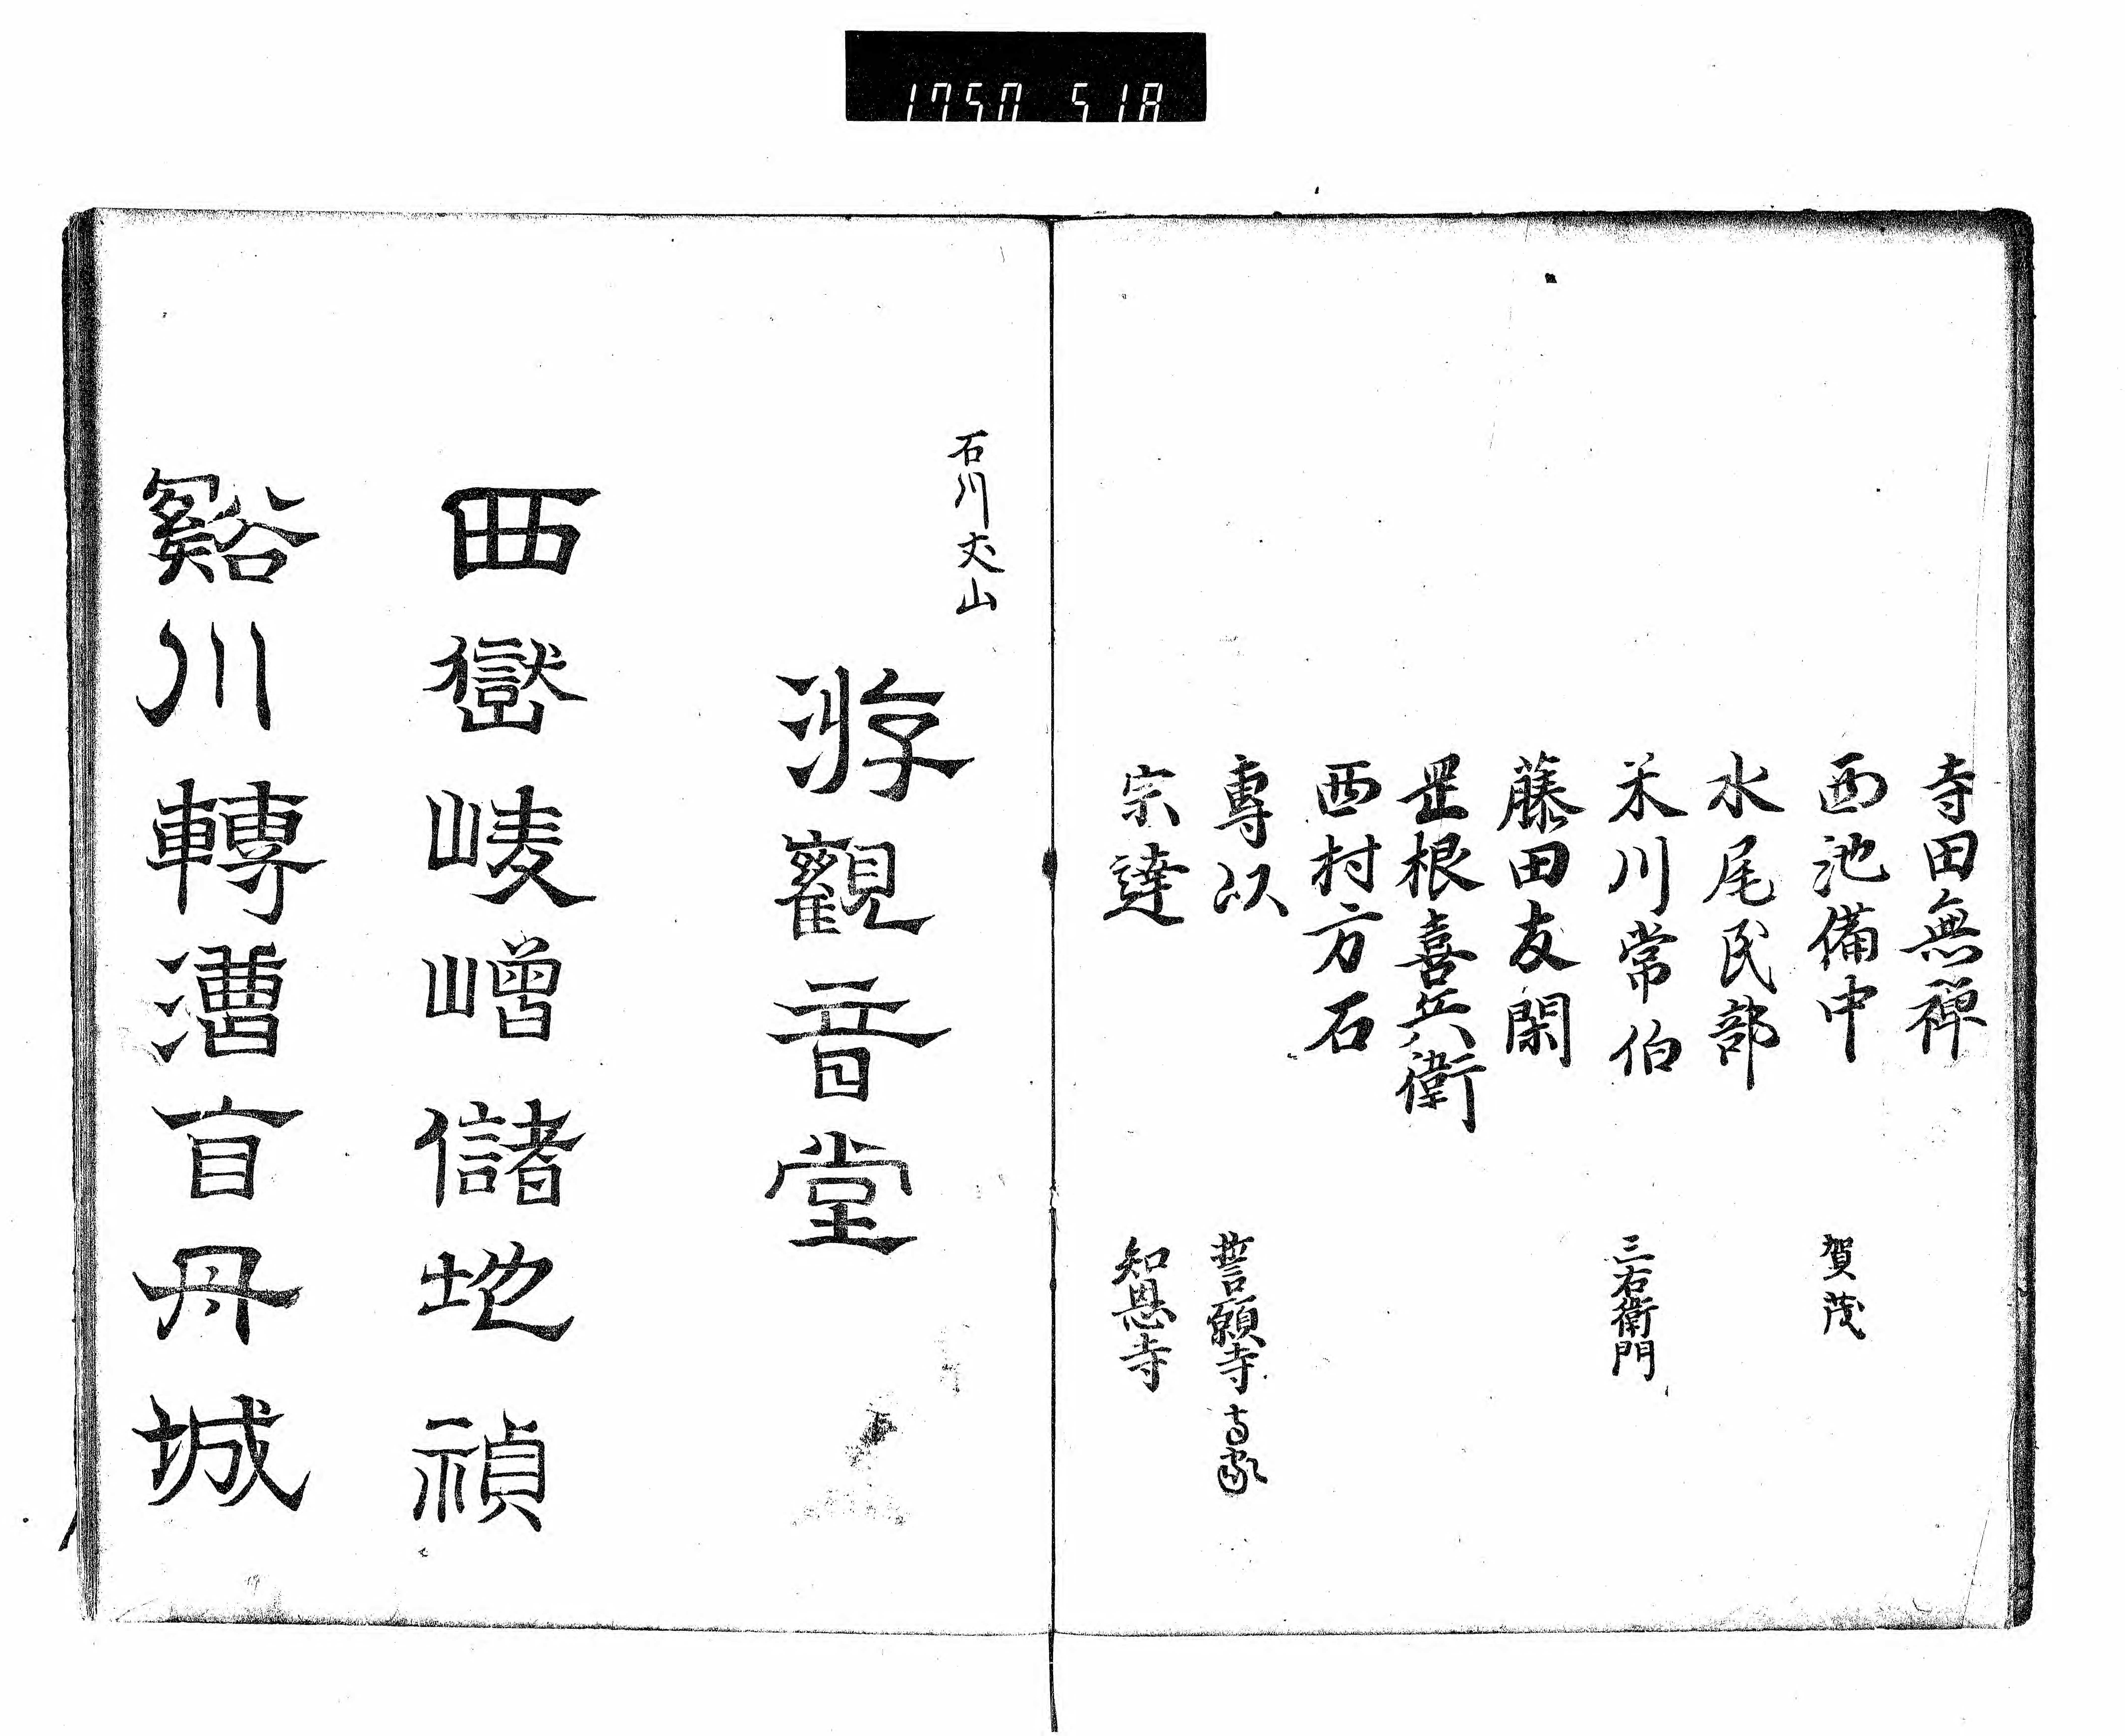 1750 51A
寺田無禅
西池備中 賀茂
水尾民部
米川常伯 三右衛門
藤田友閑
罡根喜兵衛
西村方石
專以 誓願寺
宗達 知恩寺
石川丈山
游觀音堂
西嶽崚嶒儲地禎
谿川轉漕丹城